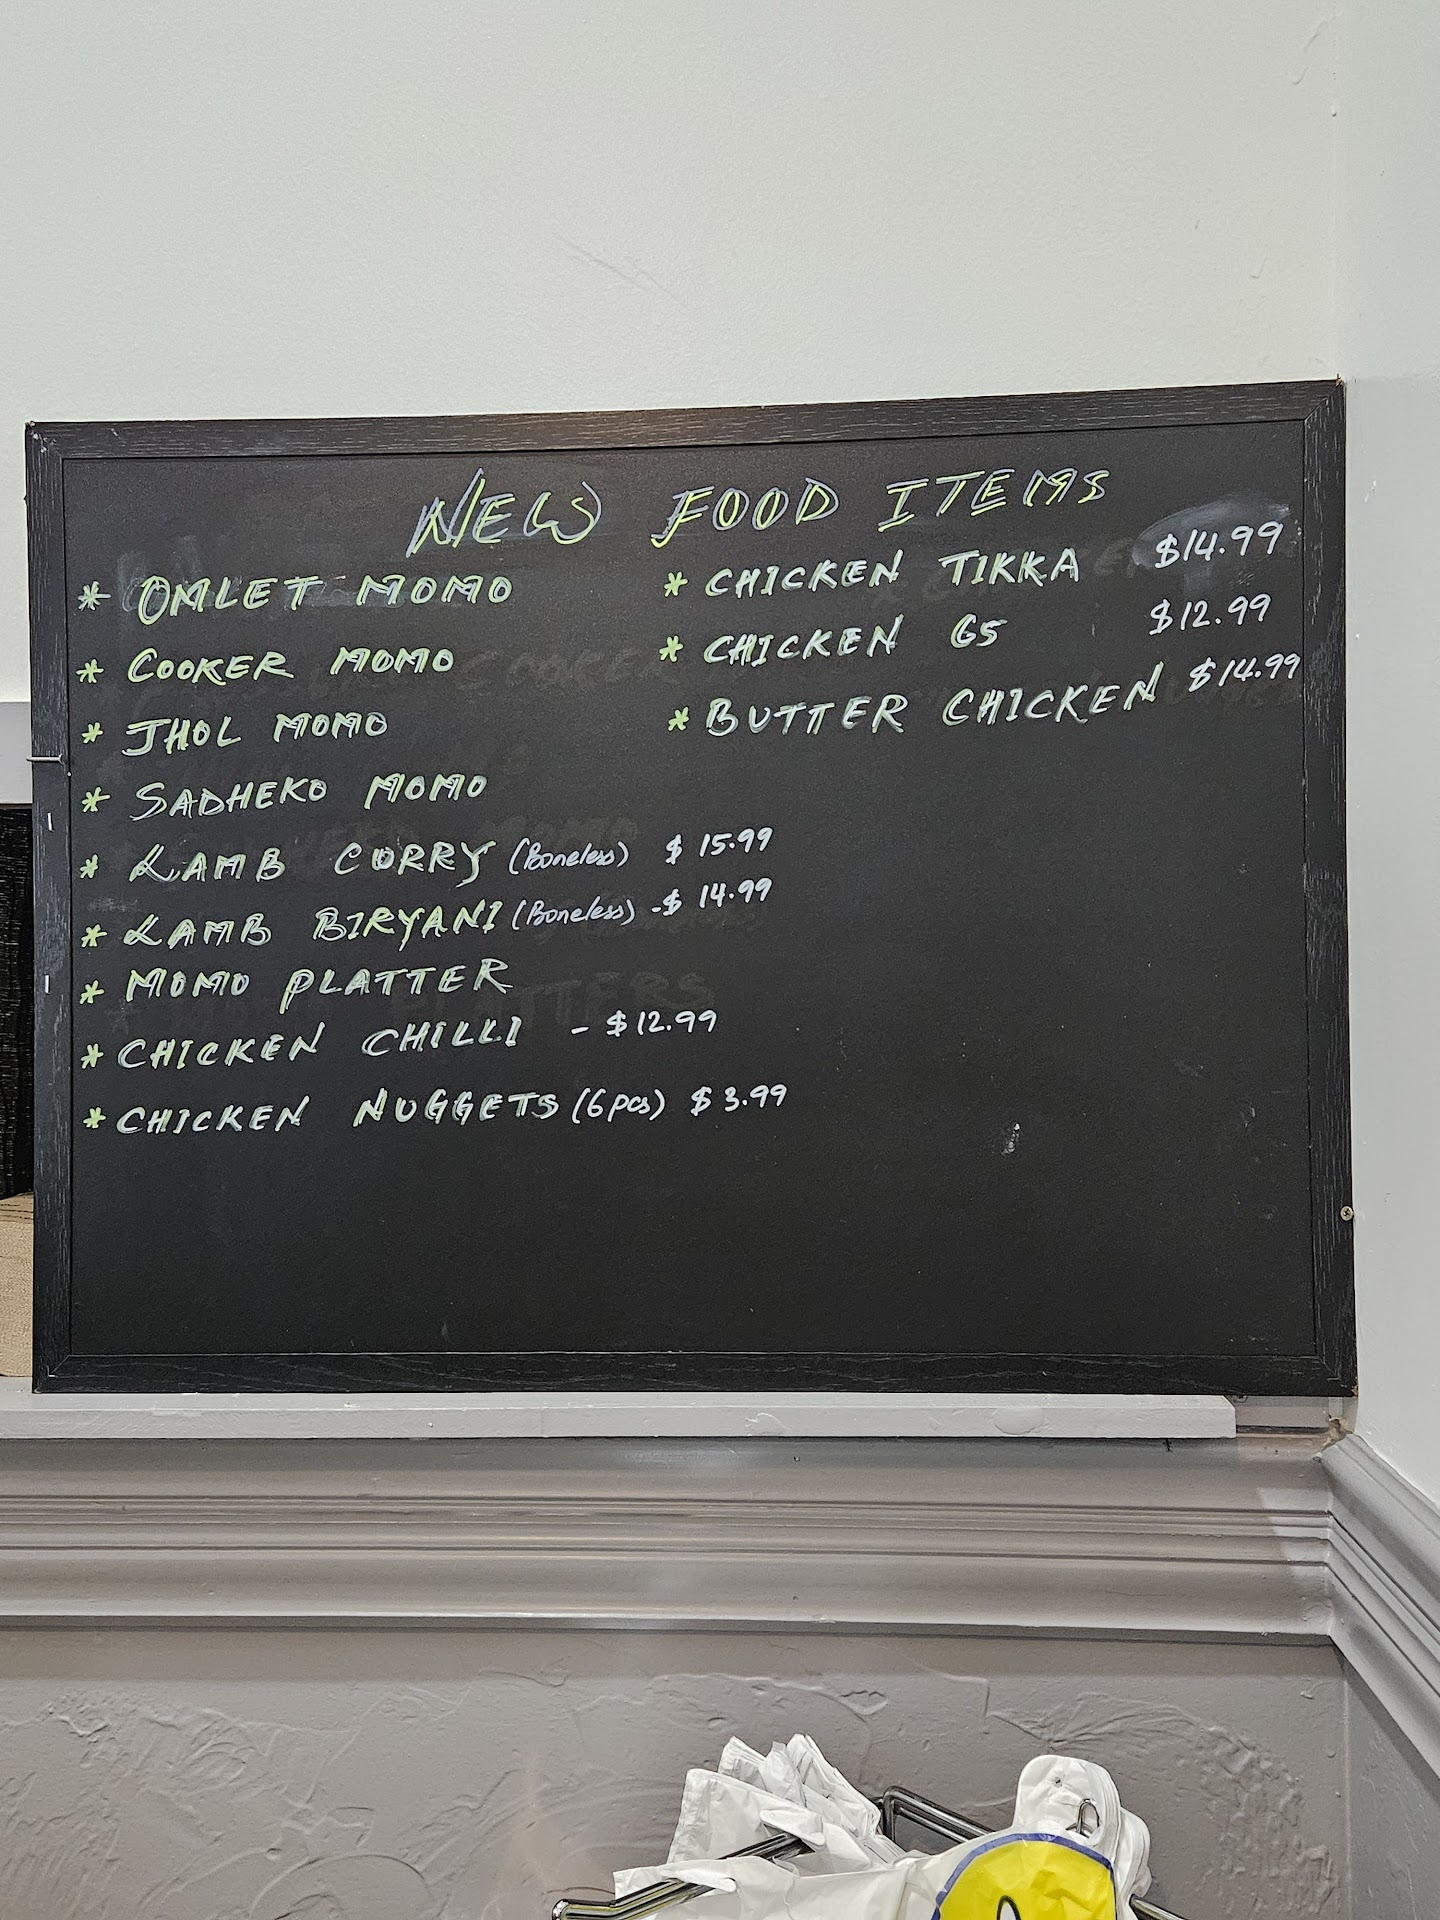 NEW FOOD ITEMS
* OMLET MOMO
* COOKER MOMO
* JHOL MOMO
* SADHEKO MOMO
* LAMB CURRY (Boneless) $ 15.99
* LAMB BIRYANI (Boneless) - $ 14.99
* MOMO PLATTER
* CHICKEN CHILLI - $12.99
* CHICKEN NUGGETS (6pcs) $3.99
* CHICKEN TIKKA $14.99
* CHICKEN 65 $12.99
* BUTTER CHICKEN $14.99